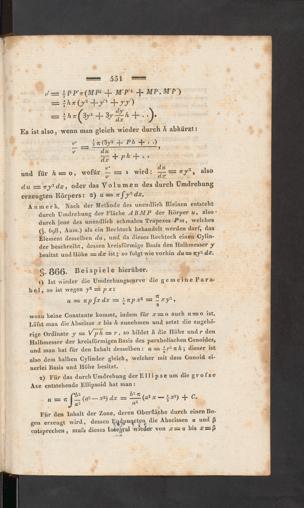 551
v' = ⅓ P P' π (MP² + M'P'² + MP . M'P')
= ⅓ h π (y² + y'² + yy')
= ⅓ h π (3y² + 3y dy/dx h + . .).
Es ist also, wenn man gleich wieder durch h abkürzt:
v'/v = ⅓ π (3y² + Ph + . .) / (du/dx + ph + . .
und für h = 0, wofür v'/v = 1 wird: du/dx = π y², also
du = π y² dx, oder das Volumen des durch Umdrehung
erzeugten Körpers: 2) u = π ∫ y² dx.
Anmerk. Nach der Methode des unendlich Kleinen entsteht
durch Umdrehung der Fläche ABMP der Körper u, also
durch jene des unendlich schmalen Trapezes Pm, welches
(§. 698, Anm.) als ein Rechteck behandelt werden darf, das
Element desselben du, und da dieses Rechteck einen Cylin-
der beschreibt, dessen kreisförmige Basis den Halbmesser y
besitzt und Höhe = dx ist; so folgt wie vorhin du = π y² dx.
§. 866. Beispiele hierüber.
1) Ist wieder die Umdrehungscurve die gemeine Para-
bel, so ist wegen y² = p x:
u = π p ∫ x dx = ½ π p x² = π/2 x y²,
wozu keine Constante kommt, indem für x = 0 auch u = 0 ist.
Läßt man die Abscisse x bis h zunehmen und setzt die zugehö-
rige Ordinate y = √ph = r, so bildet h die Höhe und r den
Halbmesser der kreisförmigen Basis des parabolischen Conoides,
und man hat für den Inhalt desselben: u = ½ r² π h; dieser ist
also dem halben Cylinder gleich, welcher mit dem Conoid ei-
nerlei Basis und Höhe besitzt.
2) Für das durch Umdrehung der Ellipse um die große
Axe entstehende Ellipsoid hat man:
u = π ∫ b²/a² (a² — x²) dx = b² π/a² (a² x — ⅓ x³) + C.
Für den Inhalt der Zone, deren Oberfläche durch einen Bo-
gen erzeugt wird, dessen Endpunkten die Abscissen α und β
entsprechen, muß dieses Integral wieder von x = α bis x = β